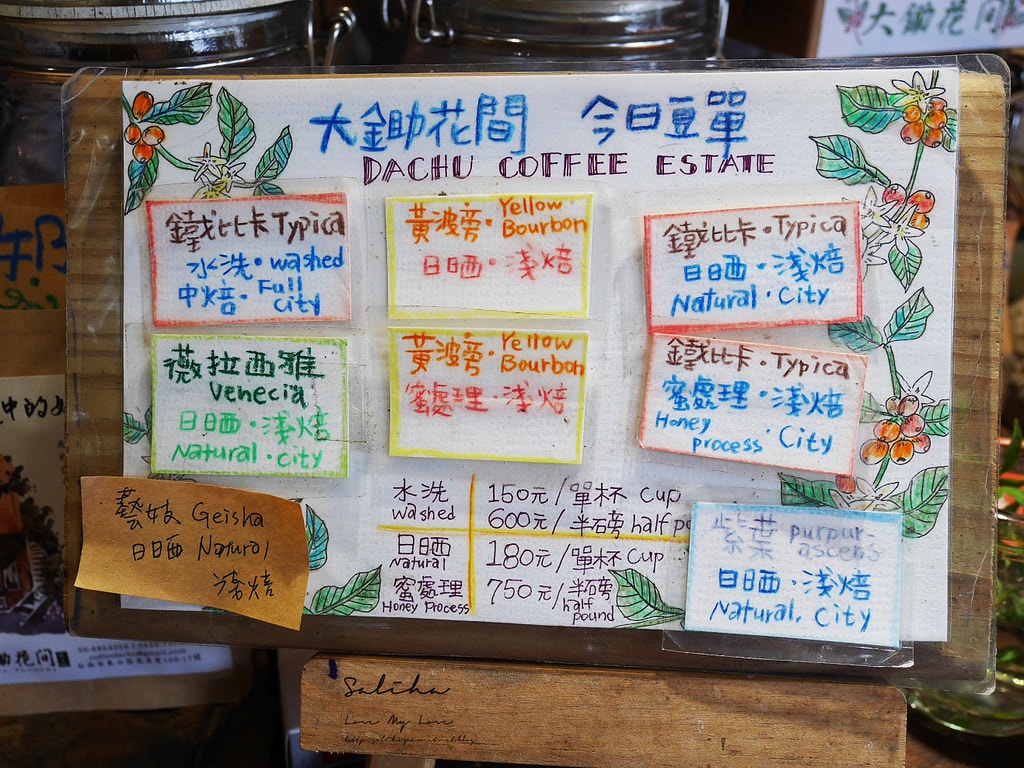 大鋤花間
大鋤花間 今日豆單
DACHU COFFEE ESTATE
鐵比卡 Typica
水洗・washed
中焙・Full
city
黃波旁・Yellow
Bourbon
日晒・淺焙
鐵比卡・Typica
日晒・淺焙
Natural・City
薇拉西雅
Venecia
日晒・淺焙
Natural・city
黃波旁・Yellow
Bourbon
蜜處理・淺焙
鐵比卡・Typica
蜜處理・淺焙
Honey
process・City
藝妓 Geisha
日晒 Natural
淺焙
水洗
washed
150元/單杯 cup
600元/半磅 half
日晒
Natural
180元/單杯 cup
蜜處理
Honey Process
750元/半磅
half
pound
紫葉 purpur-
ascens
日晒・淺焙
Natural, City
中的
鋤花間
Saliha
Love My Love